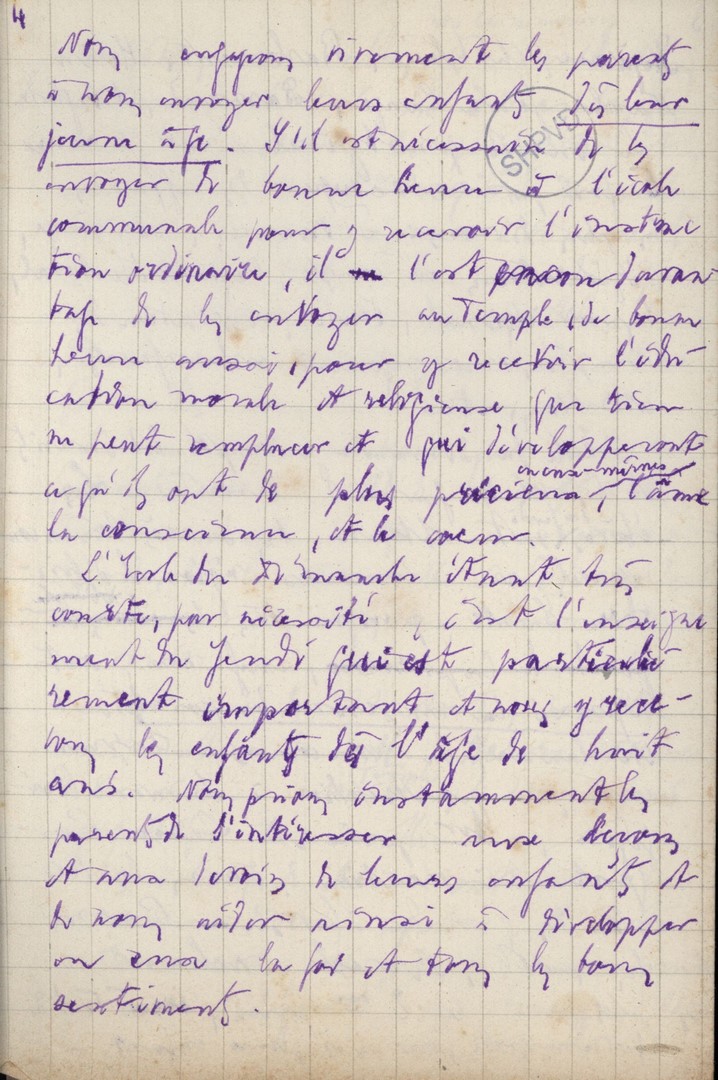 4
Nous engageons vivement les parents
à nous envoyer leurs enfants dès leur
jeune âge. S'il est nécessaire de les
SHPVD
envoyer de bonne heure à l'école
communale pour y recevoir l'instruc
tion ordinaire, il l'est encore davan
tage de les envoyer au Temple, de bonne
heure aussi, pour y recevoir l'édu
cation morale et religieuse que rien
ne peut remplacer et qui développeront
en eux-mêmes
ce qu'ils ont de plus précieux, l'âme
la conscience, et le cœur.
L'École du Dimanche étant très
courte, par nécessité, c'est l'enseigne
ment du Jeudi qui est particuliè
rement important et nous y rece-
vons les enfants dès l'âge de huit
ans. Nous prions instamment les
parents de s'intéresser aux leçons
et aux devoirs de leurs enfants et
de nous aider ainsi à développer
en eux la foi et tous les bons
sentiments.